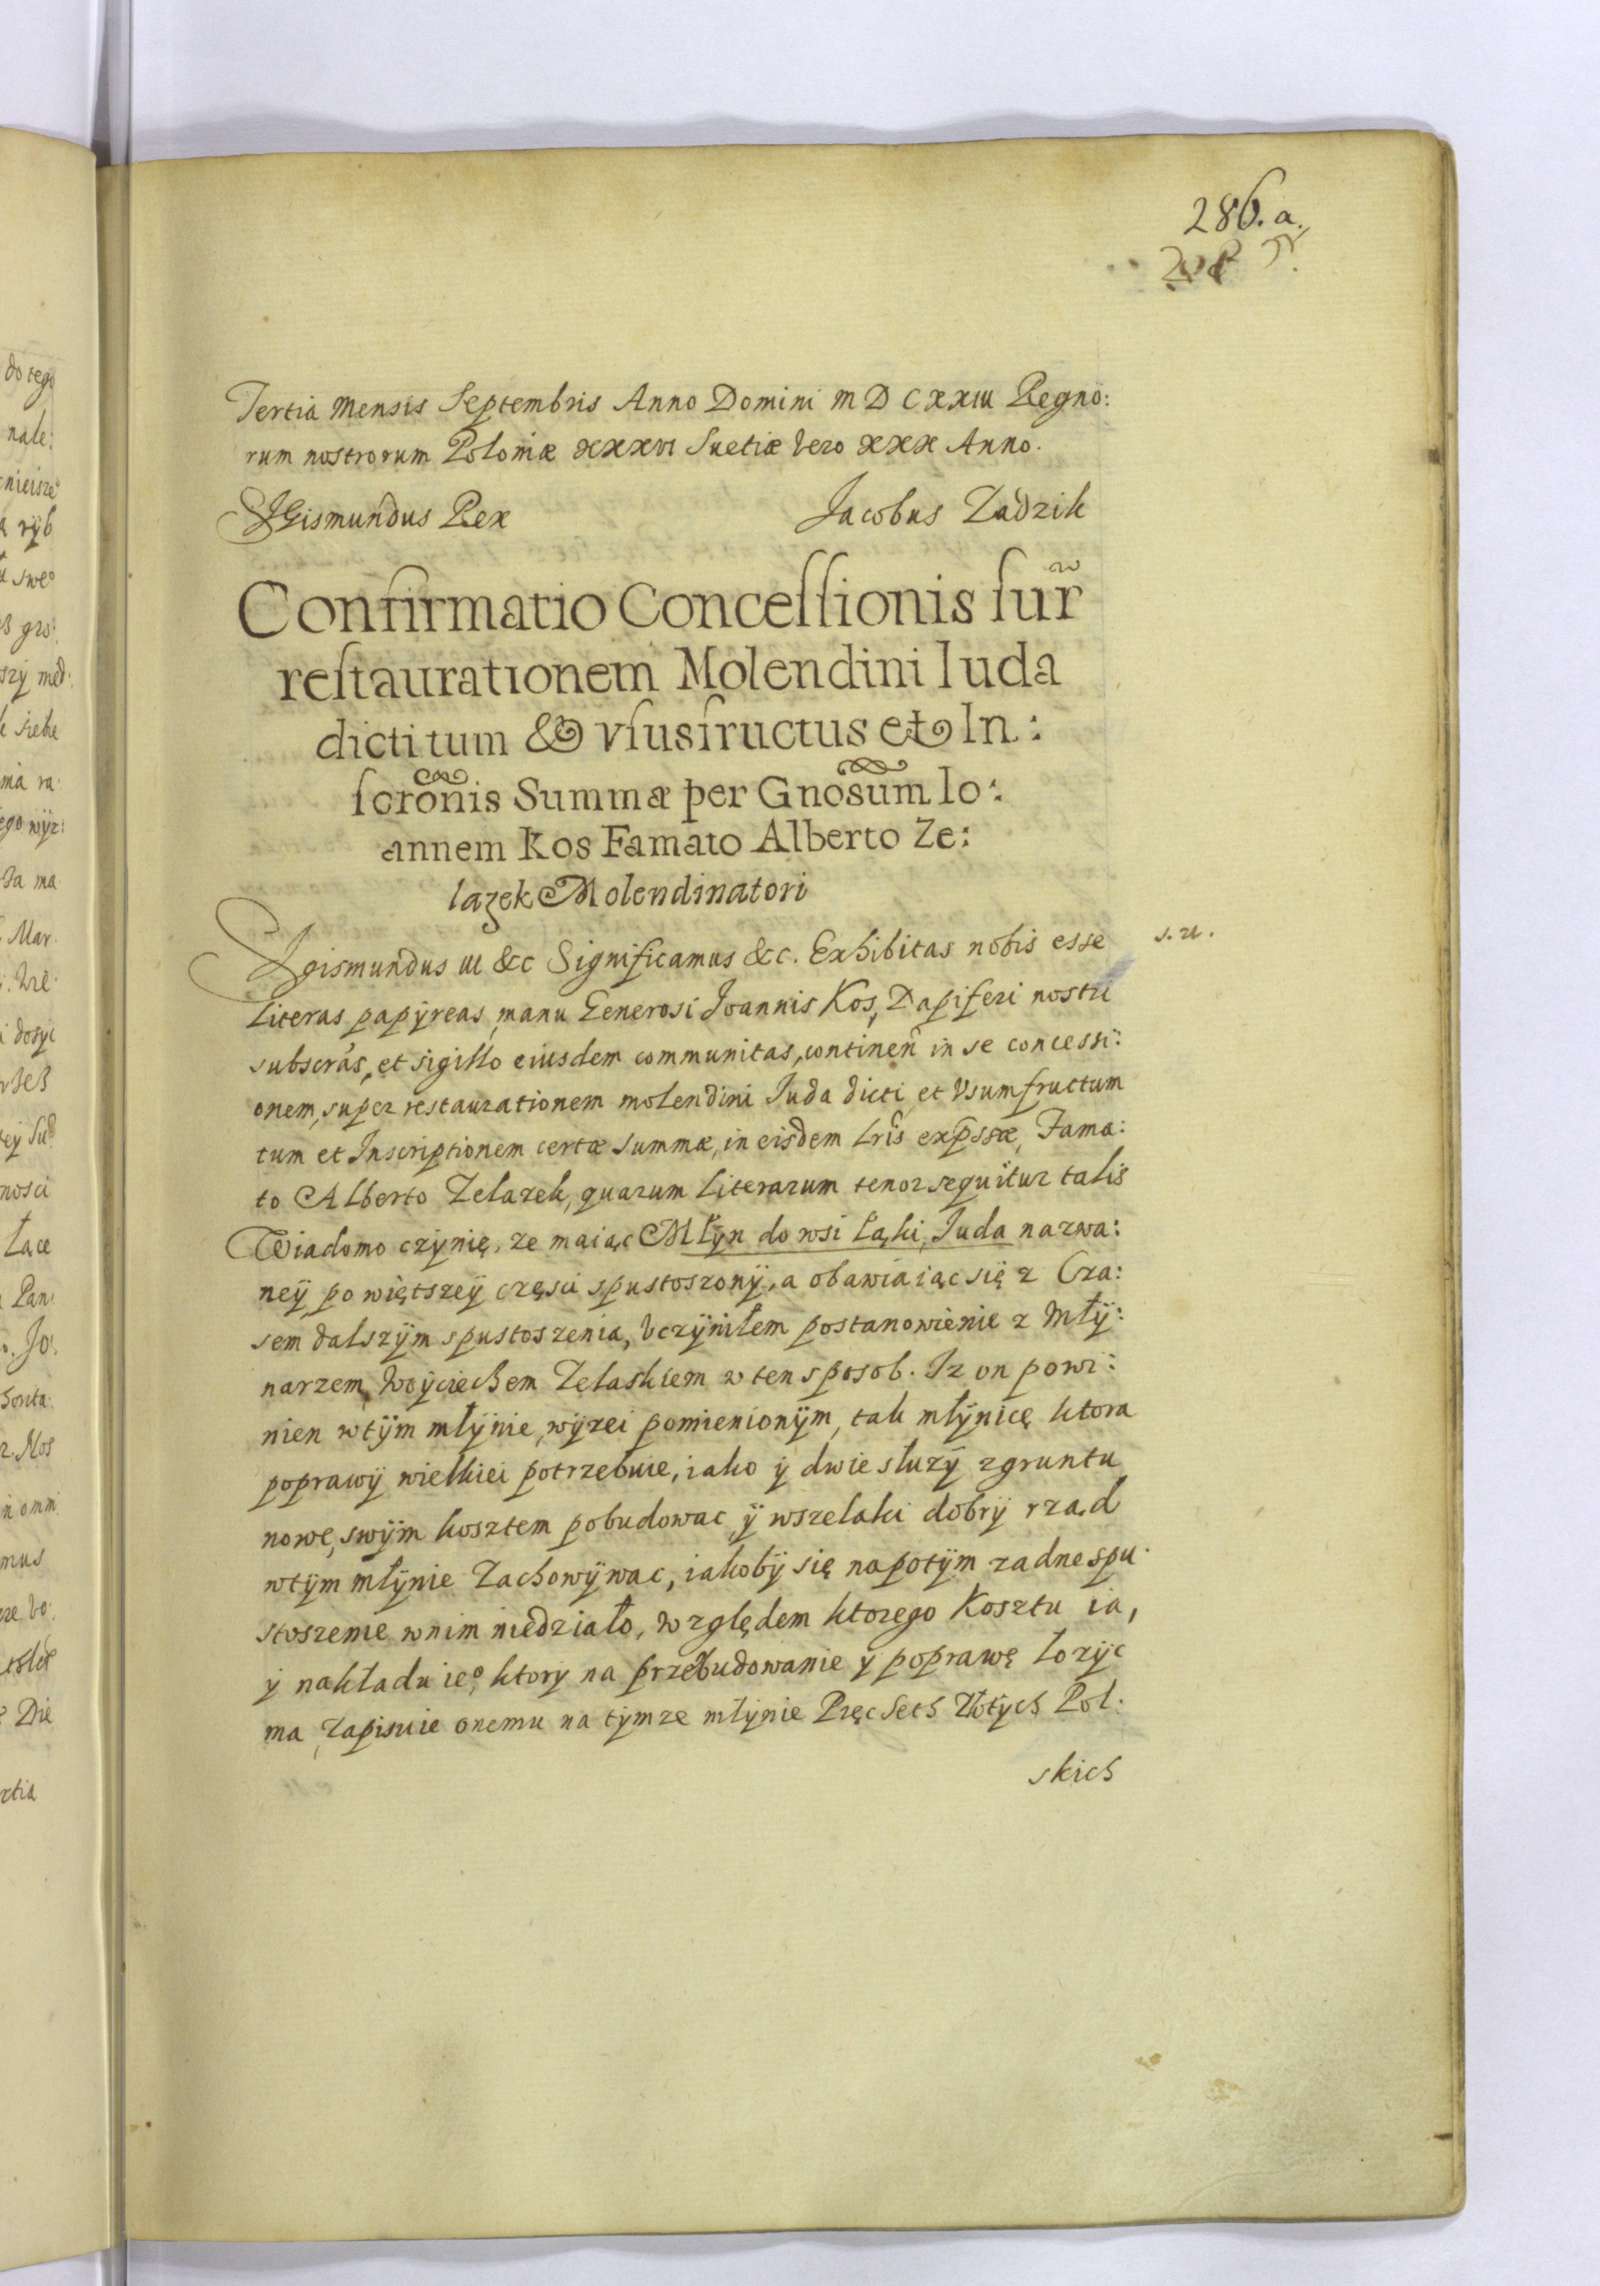 286. a.
Tertia Mensis Septembris Anno Domini M D C XXIII Regno:
rum nostrorum Poloniæ XXXVI Suetiæ vero XXX Anno.
SIGismundus Rex Jacobus Zadzik
Confirmatio Conceſſionis ſur̃
reſtaurationem Molendini Iuda
dicti tum & vſusfructus et In:
ſcrõnis Summæ per Gnõsum Io:
annem Kos Famato Alberto Ze:
lazek Molendinatori
Sigismundus III &c Significamus &c. Exhibitas nobis esse
Literas papÿreas, manu Generosi Joannis Kos, Dapiferi nostri
subscrãs, et sigillo eiusdem communitas, continen̄ in se concessi:
onem, super restaurationem molendini Juda dicti et Vsumfructum
tum et Inscriptionem certæ summæ, in eisdem Lrĩs exp̄ssæ, Fama:
to Alberto Zelazek, quarum Literarum tenor sequitur talis
Wiadomo czÿnię, ze maiąc Młÿn do wsi Łąki, Juda nazwa:
neÿ po więtszeÿ częsci spustoszonÿ, a obawiaiąc się z Cza:
sem dalszÿm spustoszenia, Vczÿniłem postanowienie z Młÿ:
narzem, Woÿciechem Zelaskiem w ten sposob. Iz on powi:
nien wtÿm młÿnie, wÿzei pomienionÿm, tak młÿnicę ktora
poprawÿ wielkiei potrzebuie, iako ÿ dwie służÿ zgruntu
nowe, swÿm kosztem pobudowac, ÿ wszelaki dobrÿ rząd
wtÿm młÿnie Zachowÿwac, iakobÿ się napotÿm zadne spu:
stoszenie wnim niedziało, Względem ktorego Kosztu ia,
ÿ nakładu ieº, ktorÿ na przebudowanie ÿ poprawę łozÿc
ma, Zapisuie onemu na tÿmze młÿnie Pięc seth Złotÿch Pol:
skich